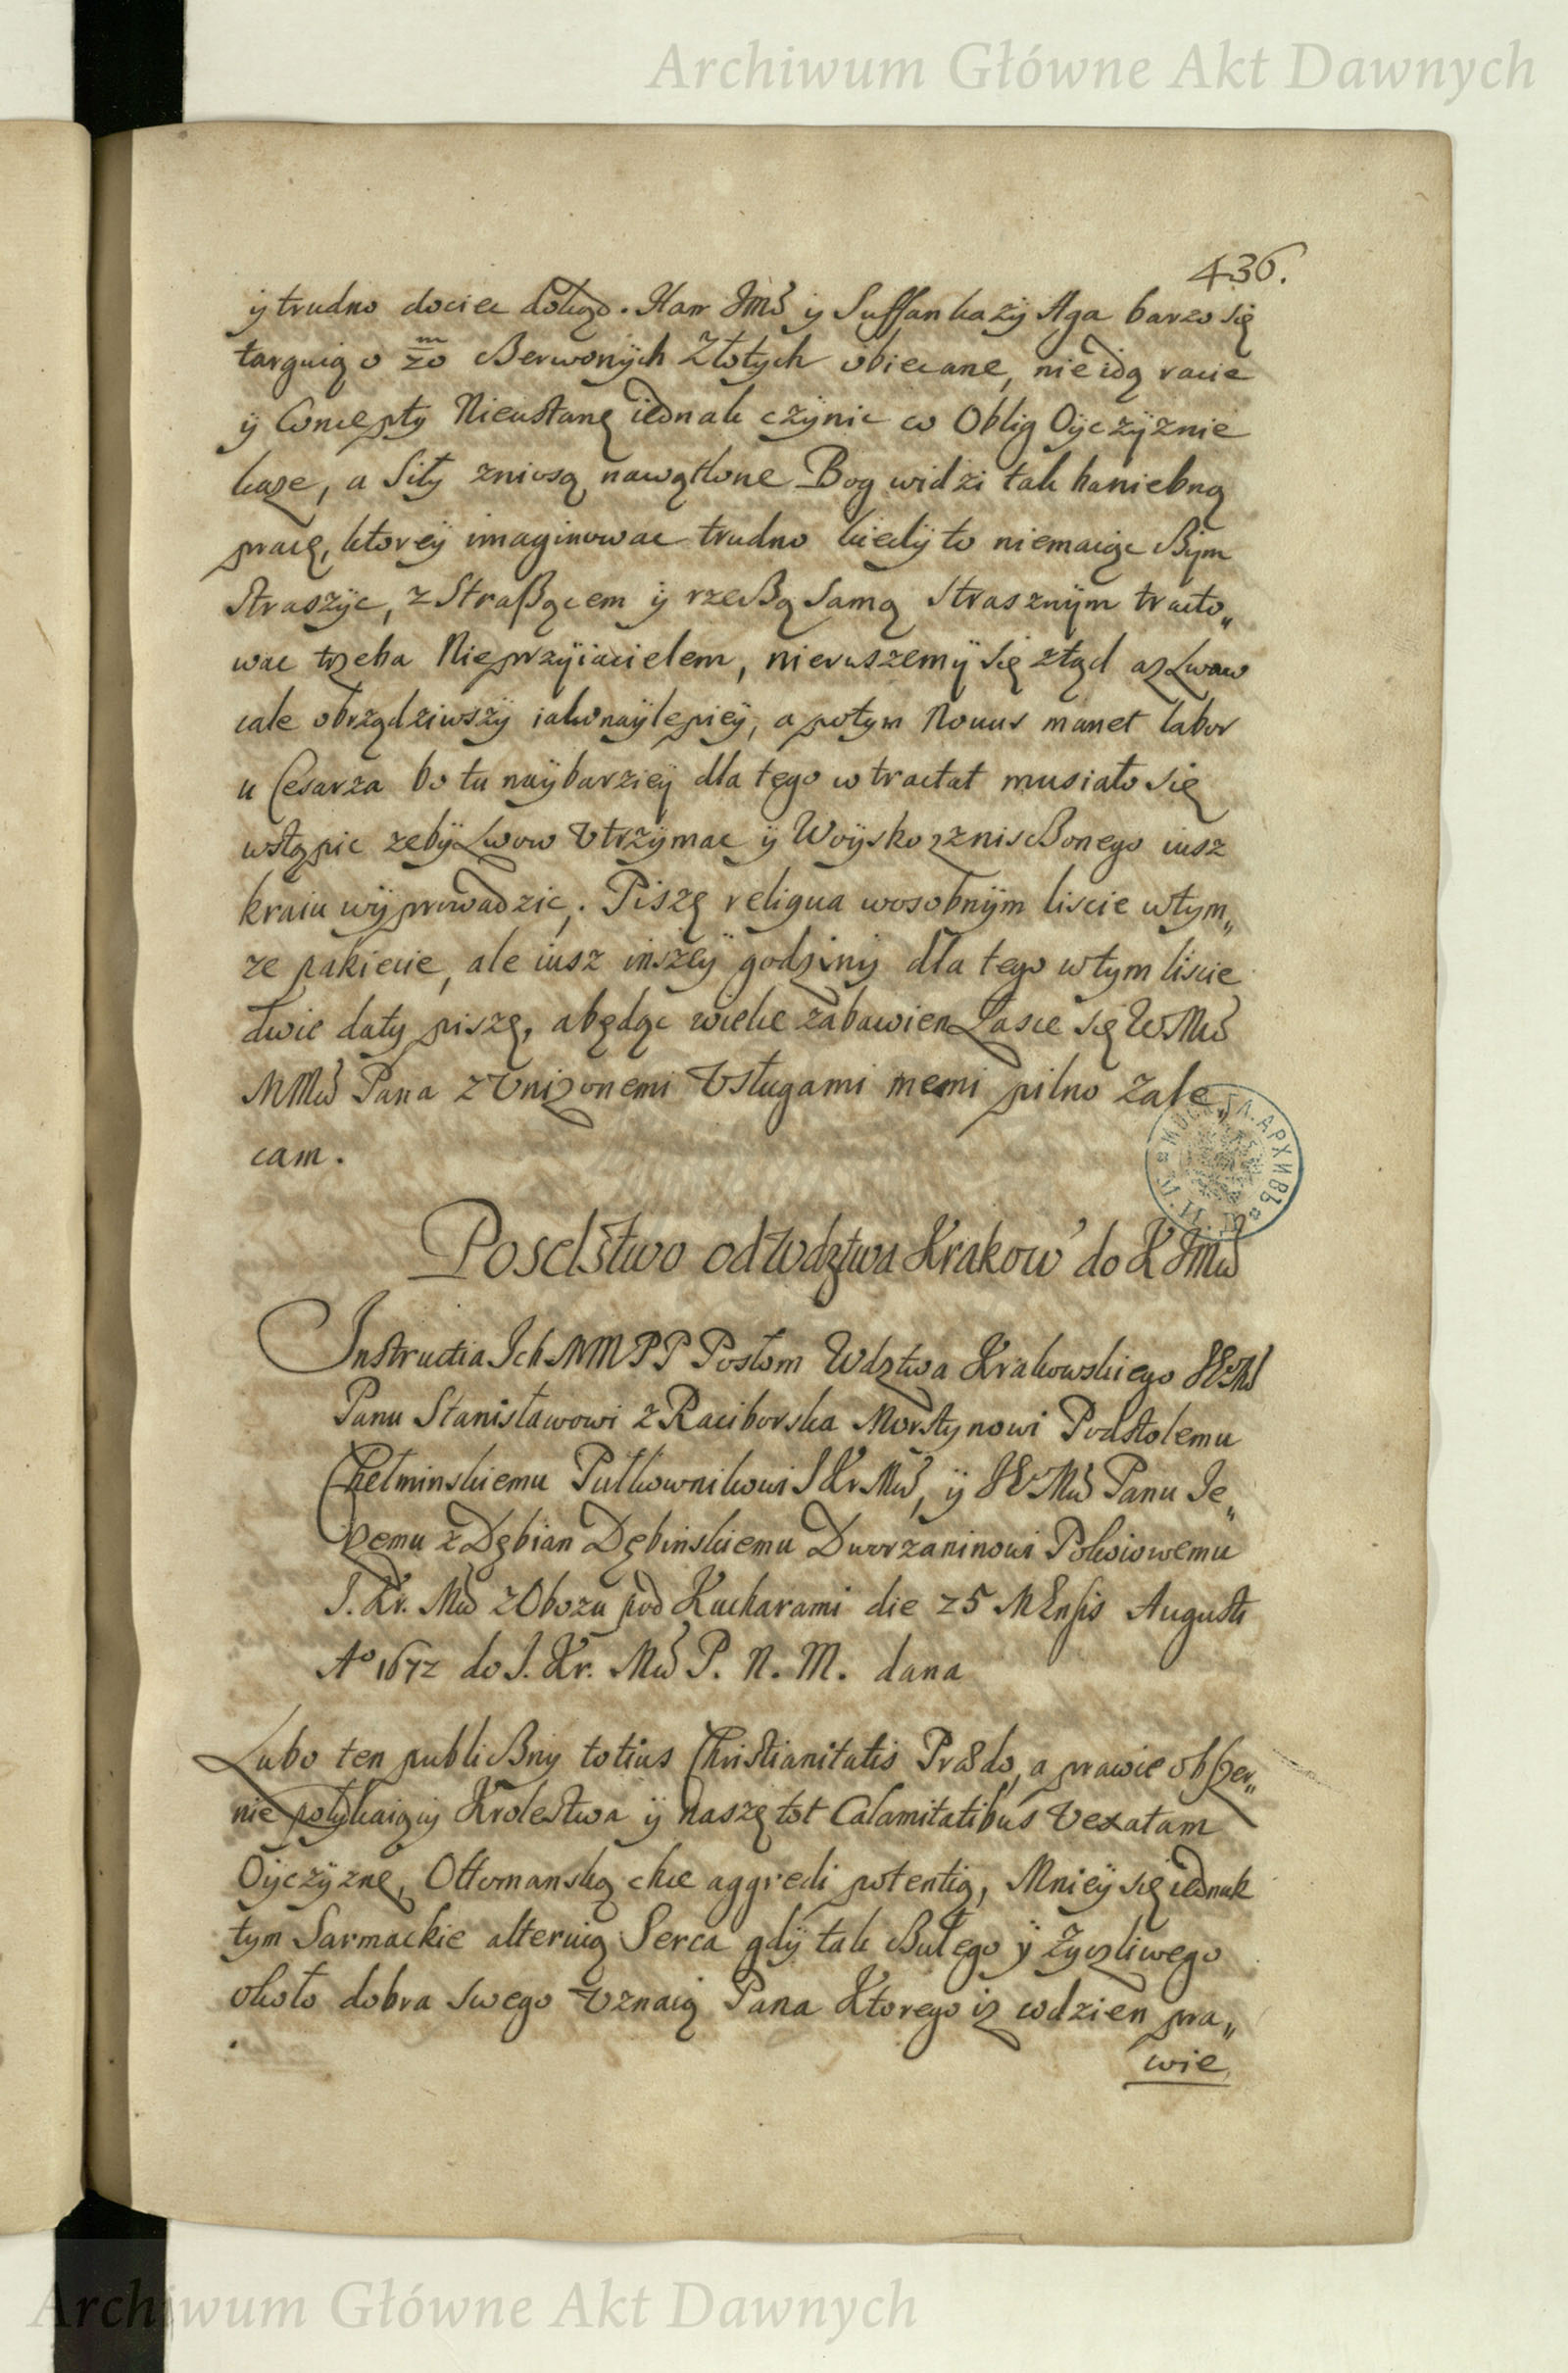 Archiwum Główne Akt Dawnych
436.
ÿ trudno dociec dokąd. Han Jmć ÿ Suffankażÿ Aga barzo się
targuią o 20 m Czerwonÿch Złotych obiecane, nie idą racie
ÿ Concepty Nieustanę iednak czÿnic co Oblig Oÿczÿznie
każe, a Siły zniosą nawątlone Bog widzi tak haniebną
pracę, ktorey imaginowac trudno kiedÿ to niemaiąc czÿm
straszÿc, z Straszącem ÿ rzeczą samą strasznÿm tracto„
wac trzeba Nieprzÿiacielem, nieruszemÿ się ztąd asz Lwow
cale obrządziwszÿ iako naÿlepieÿ, a potym Nouus manet labor
u Cesarza bo tu naÿbarzieÿ dla tego w tractat musiało się
wstąpic zebÿ Lwow Vtrzÿmac ÿ Woÿsko z zniszczonego iusz
kraiu wÿprowadzic. Piszę reliqua wosobnÿm liscie wtym„
ze pakiecie, ale iusz inszeÿ godzinÿ dla tego w tym liscie
dwie daty piszę, abędąc wielce zabawien Łasce się WMć
MMć Pana z Vniżonemi Vsługami memi pilno zale„
cam.
Poselstwo od Wdztwa Krakow' do K JMć
Instructia Ich MM PP Posłom Wdztwa Krakowskiego JEMć
Panu Stanisławowi z Raciborska Morstynowi Podstolemu
Chełminskiemu Pułkownikowi J Kr Mć, ÿ JEMć Panu Je„
rzemu z Dębian Dębinskiemu Dworzaninowi Pokoiowemu
J. Kr. Mć z Obozu pod Kucharami die 25 MEnsis Augusti
Aº 1672 do J. Kr. Mć P. N. M. dana
Lubo ten publiczny totius Christianitatis Præda, a prawie obszer„
nie połykaiący Krolestwa ÿ naszę tot Calamitatibus Vexatam
Oÿczÿznę, Ottomanską chce aggredi potentią, Mnieÿ się iednak
tym Sarmackie alteruią Serca gdÿ tak czułego ÿ Życzliwego
około dobra swego Vznaią Pana Ktorego iż codzien pra„
wie
Archiwum Główne Akt Dawnych